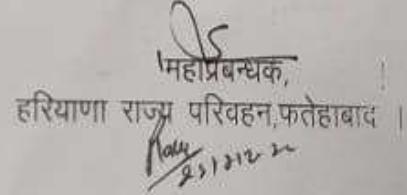 महाप्रबन्धक,
हरियाणा राज्य परिवहन,फतेहाबाद ।